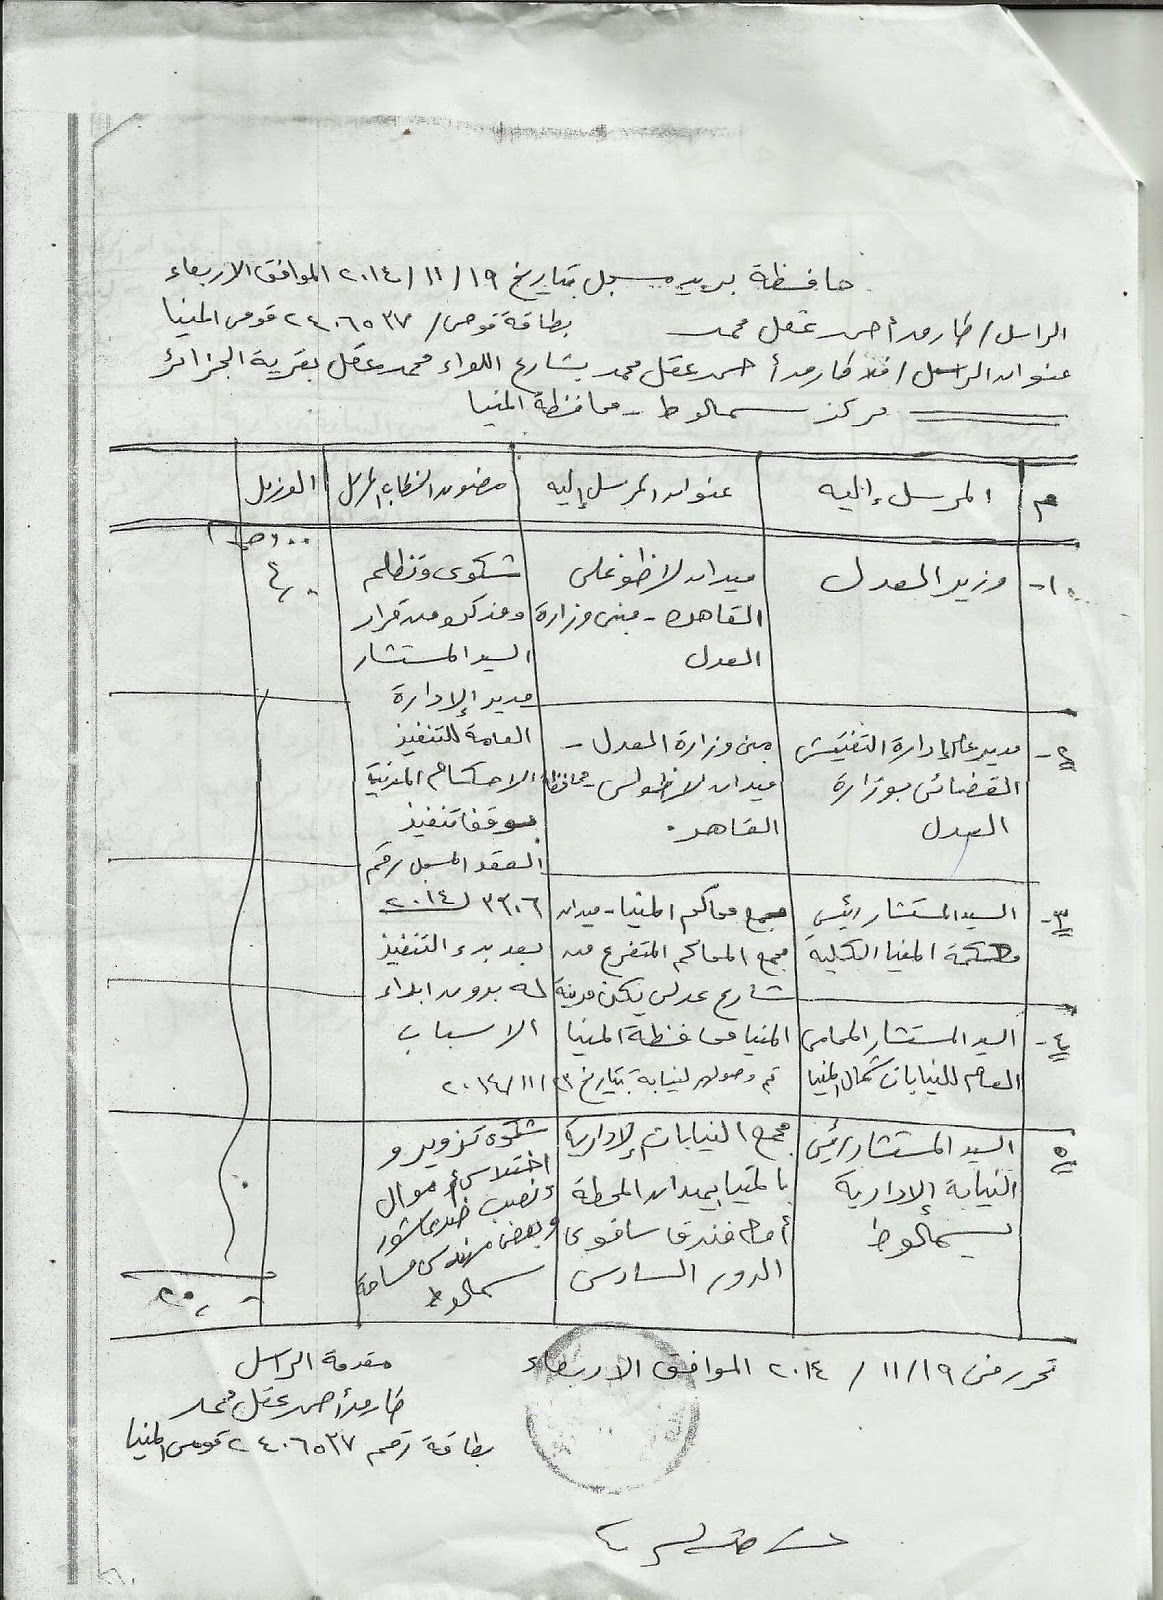 حافظة بريد مسجل بتاريخ ١٩/ ١١/ ٢٠١٤ الموافق الاربعاء
الراسل/ طارق أحمد عقل محمد بطاقة قومى/ ٢٤٠٦٥٣٧ قومى المنيا
عنوان الراسل/ طارق أحمد عقل محمد بشارع اللواء محمد عقل بقرية الجزائر
مركز سمالوط - محافظة المنيا
م المرسل إليه عنوان المرسل إليه مضمون الخطاب المرسل الوزن
١- وزير العدل
ميدان لاظوغلى
القاهرة - مبنى وزارة
العدل
شكوى وتظلم
ومذكرة من قرار
السيد المستشار
مدير الإدارة
العامة للتنفيذ
الاحكام المدنية
بوقف تنفيذ
العقد المسجل رقم
٣٩٠٦ لـ ٢٠١٤
بعد بدء التنفيذ
له بدون ابداء
الاسباب
٤٠
٢- مدير عام إدارة التفتيش
القضائى بوزارة
العدل
مبنى وزارة العدل -
ميدان لاظوغلى - محافظة
القاهرة.
٣- السيد المستشار رئيس
محكمة المنيا الكلية
مجمع محاكم المنيا - ميدان
مجمع المحاكم المتفرع من
شارع عدلى يكن مدينة
المنيا محافظة المنيا
٤- السيد المستشار المحامى
العام للنيابات شمال المنيا
تم وصول لنيابة بتاريخ ٢٣/ ١١/ ٢٠١٤
٥- السيد المستشار رئيس
النيابة الإدارية
بسمالوط
مجمع النيابات الإدارية
بالمنيا بميدان المحطة
أمام فندق سافوى
الدور السادس
شكوى تزوير و
اختلاس أموال
ونصب ضد عاشور
وبعض مهندسى مساحة
سمالوط
تحرر فى ١٩/ ١١/ ٢٠١٤ الموافق الاربعاء
مقدمة الراسل
طارق أحمد عقل محمد
بطاقة رقم ٢٤٠٦٥٣٧ قومى المنيا